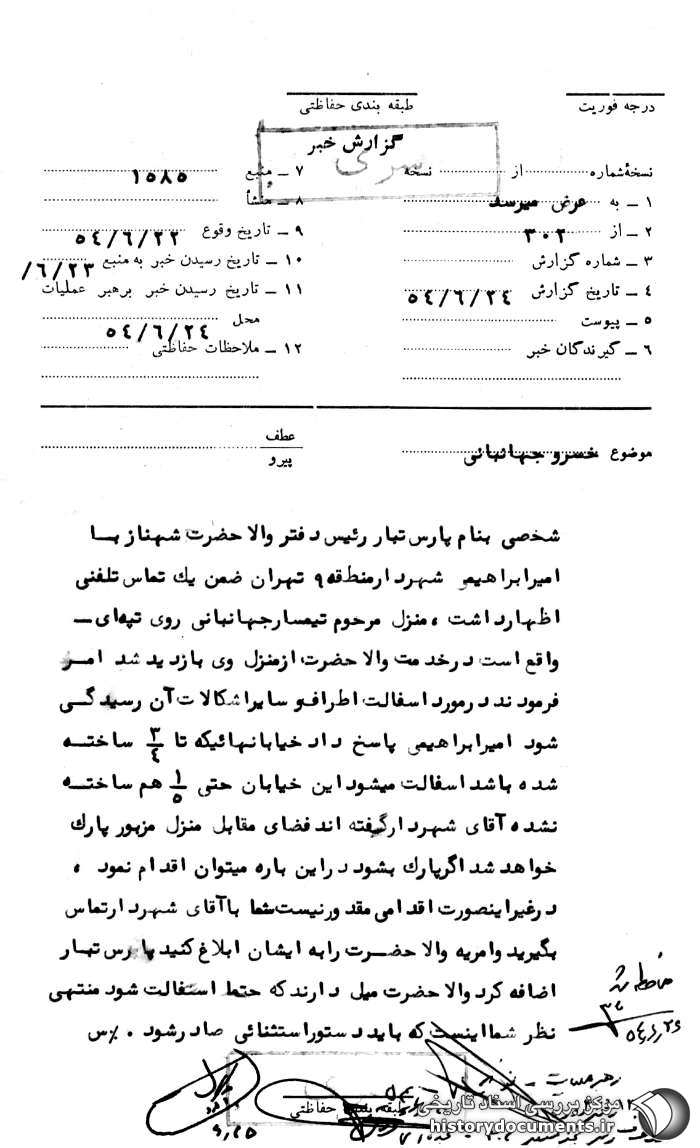 درجه فوریت
طبقه بندی حفاظتی
گزارش خبر
سری
نسخهٔ شماره از نسخه
۱ ــ به عرض میرسد
۲ ــ از ۳۰۲
۳ ــ شماره گزارش
۴ ــ تاریخ گزارش ۵۴/۶/۲۴
۵ ــ پیوست
۶ ــ گیرندگان خبر
۷ ــ منبع ۱۵۸۵
۸ ــ منشأ
۹ ــ تاریخ وقوع ۵۴/۶/۲۲
۱۰ ــ تاریخ رسیدن خبر به منبع ۶/۲۳/
۱۱ ــ تاریخ رسیدن خبر برهبر عملیات
محل ۵۴/۶/۲۴
۱۲ ــ ملاحظات حفاظتی
موضوع خسرو جهانبانی
عطف
پیرو
شخصی بنام پارس تبار رئیس دفتر والا حضرت شهناز بـــا
امیرابراهیمی شهردارمنطقه ۹ تهران ضمن یك تماس تلفنی
اظهارداشت ، منزل مرحوم تیمسارجهانبانی روی تپه‌ای ــ
واقع است درخدمت والا حضرت ازمنزل وی بازدید شد امــر
فرمودند درمورد اسفالت اطراف و سایراشکالات آن رسیدگــی
شود امیرابراهیمی پاسخ داد خیابانهائیکه تا ۳/۴ ساختــه
شده باشد اسفالت میشود این خیابان حتی ۱/۵ هم ساختــه
نشده آقای شهردار گفته اند فضای مقابل منزل مزبور پارك
خواهد شد اگرپارك بشود دراین باره میتوان اقدام نمود ،
درغیراینصورت اقدامی مقدورنیست شما باآقای شهردارتماس
بگیرید وامریه والا حضــرت رابه ایشان ابلاغ کنید پارس تبــار
اضافه کرد والا حضرت میل دارند که حتط اسفالت شود منتهی
نظر شما اینست که باید دستور استثنائی صادرشود . %س
۵۴/۶/۲۶
رهبر عملیات
طبقه بندی حفاظتی
۹/۲۵
مرکز بررسی اسناد تاریخی
historydocuments.ir